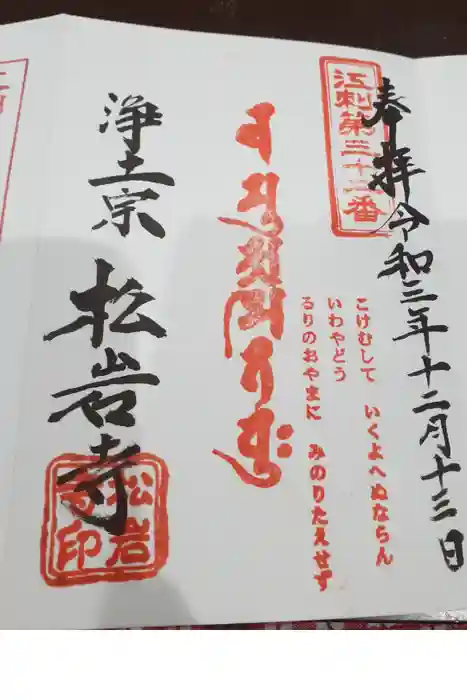 奉拝 令和三年十二月十三日
江刺第三十二番
こけむして いくよへぬならん
いわやどう
るりのおやまに みのりたえせず
浄土宗 松岩寺
松岩寺印